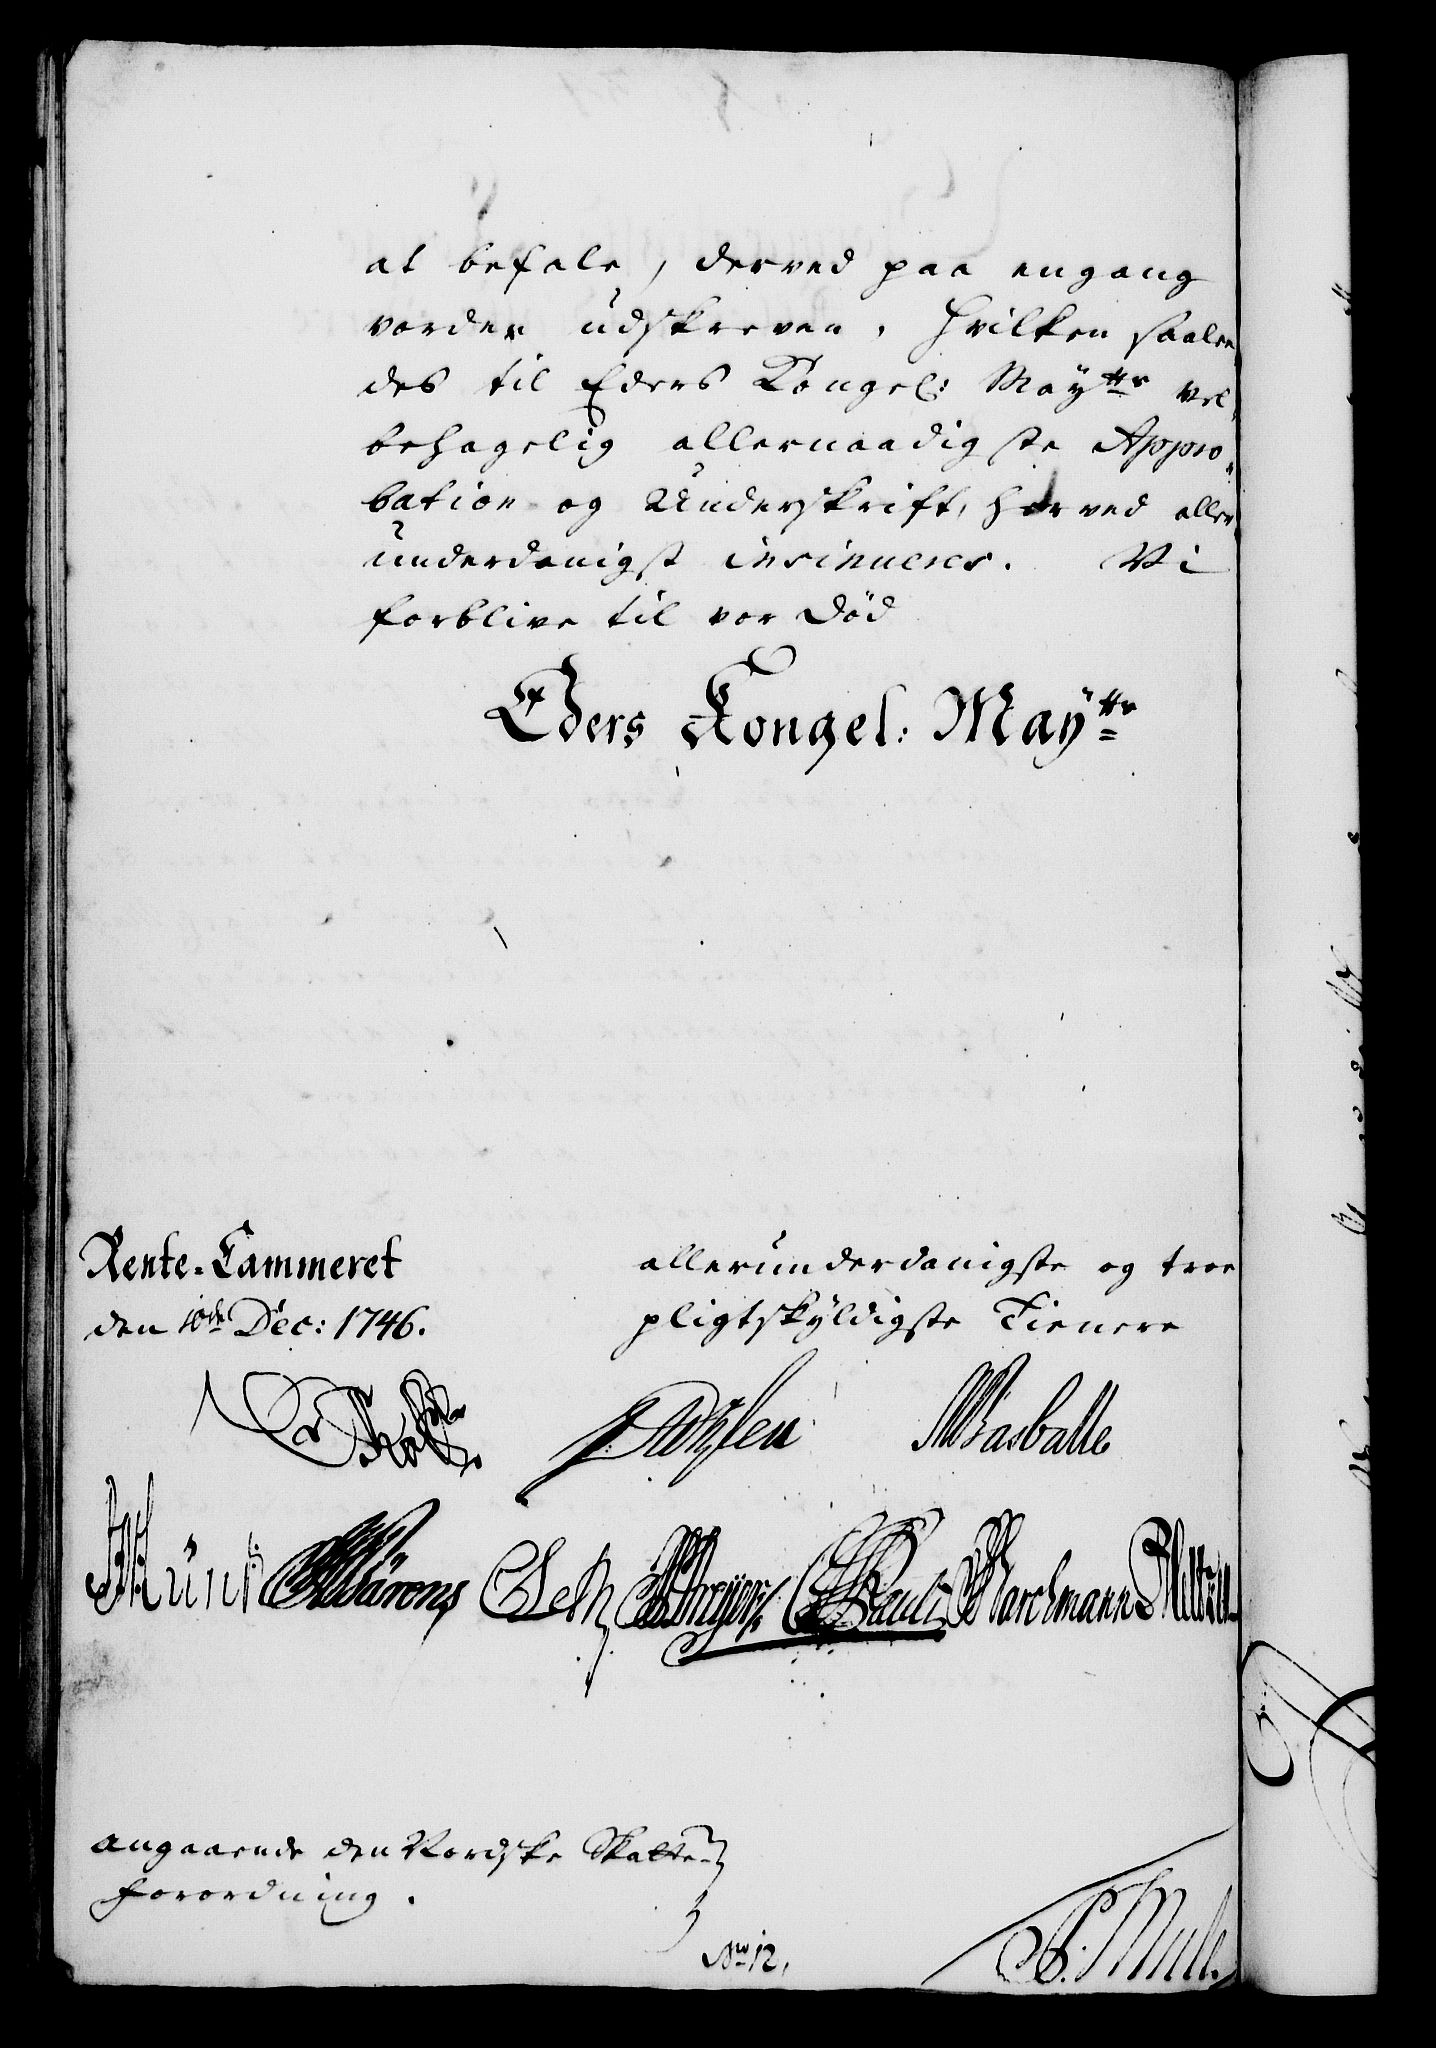 at befale, derved paa engang
vorder udskreven. Hvilken saalee,,
des til Eders Kongel: Mayttr vel,,
behagelig allernaadigste Appro,,
bation og Underskrift, herved aller,,
underdanigst insinueres. Vi
forblive til vor Død
Eders Kongel: Mayttr
Rente-Cammeret
den 10de Dec: 1746.
allerunderdanigste og troe
pligtskyldigste Tienere
Holtzen
Rasballe
Munk
Wärens
Seth
Dreyer
Pauli
Barchmann
angaaende den Nordske Skatte-
Forordning.
No 12,
P. Mule.